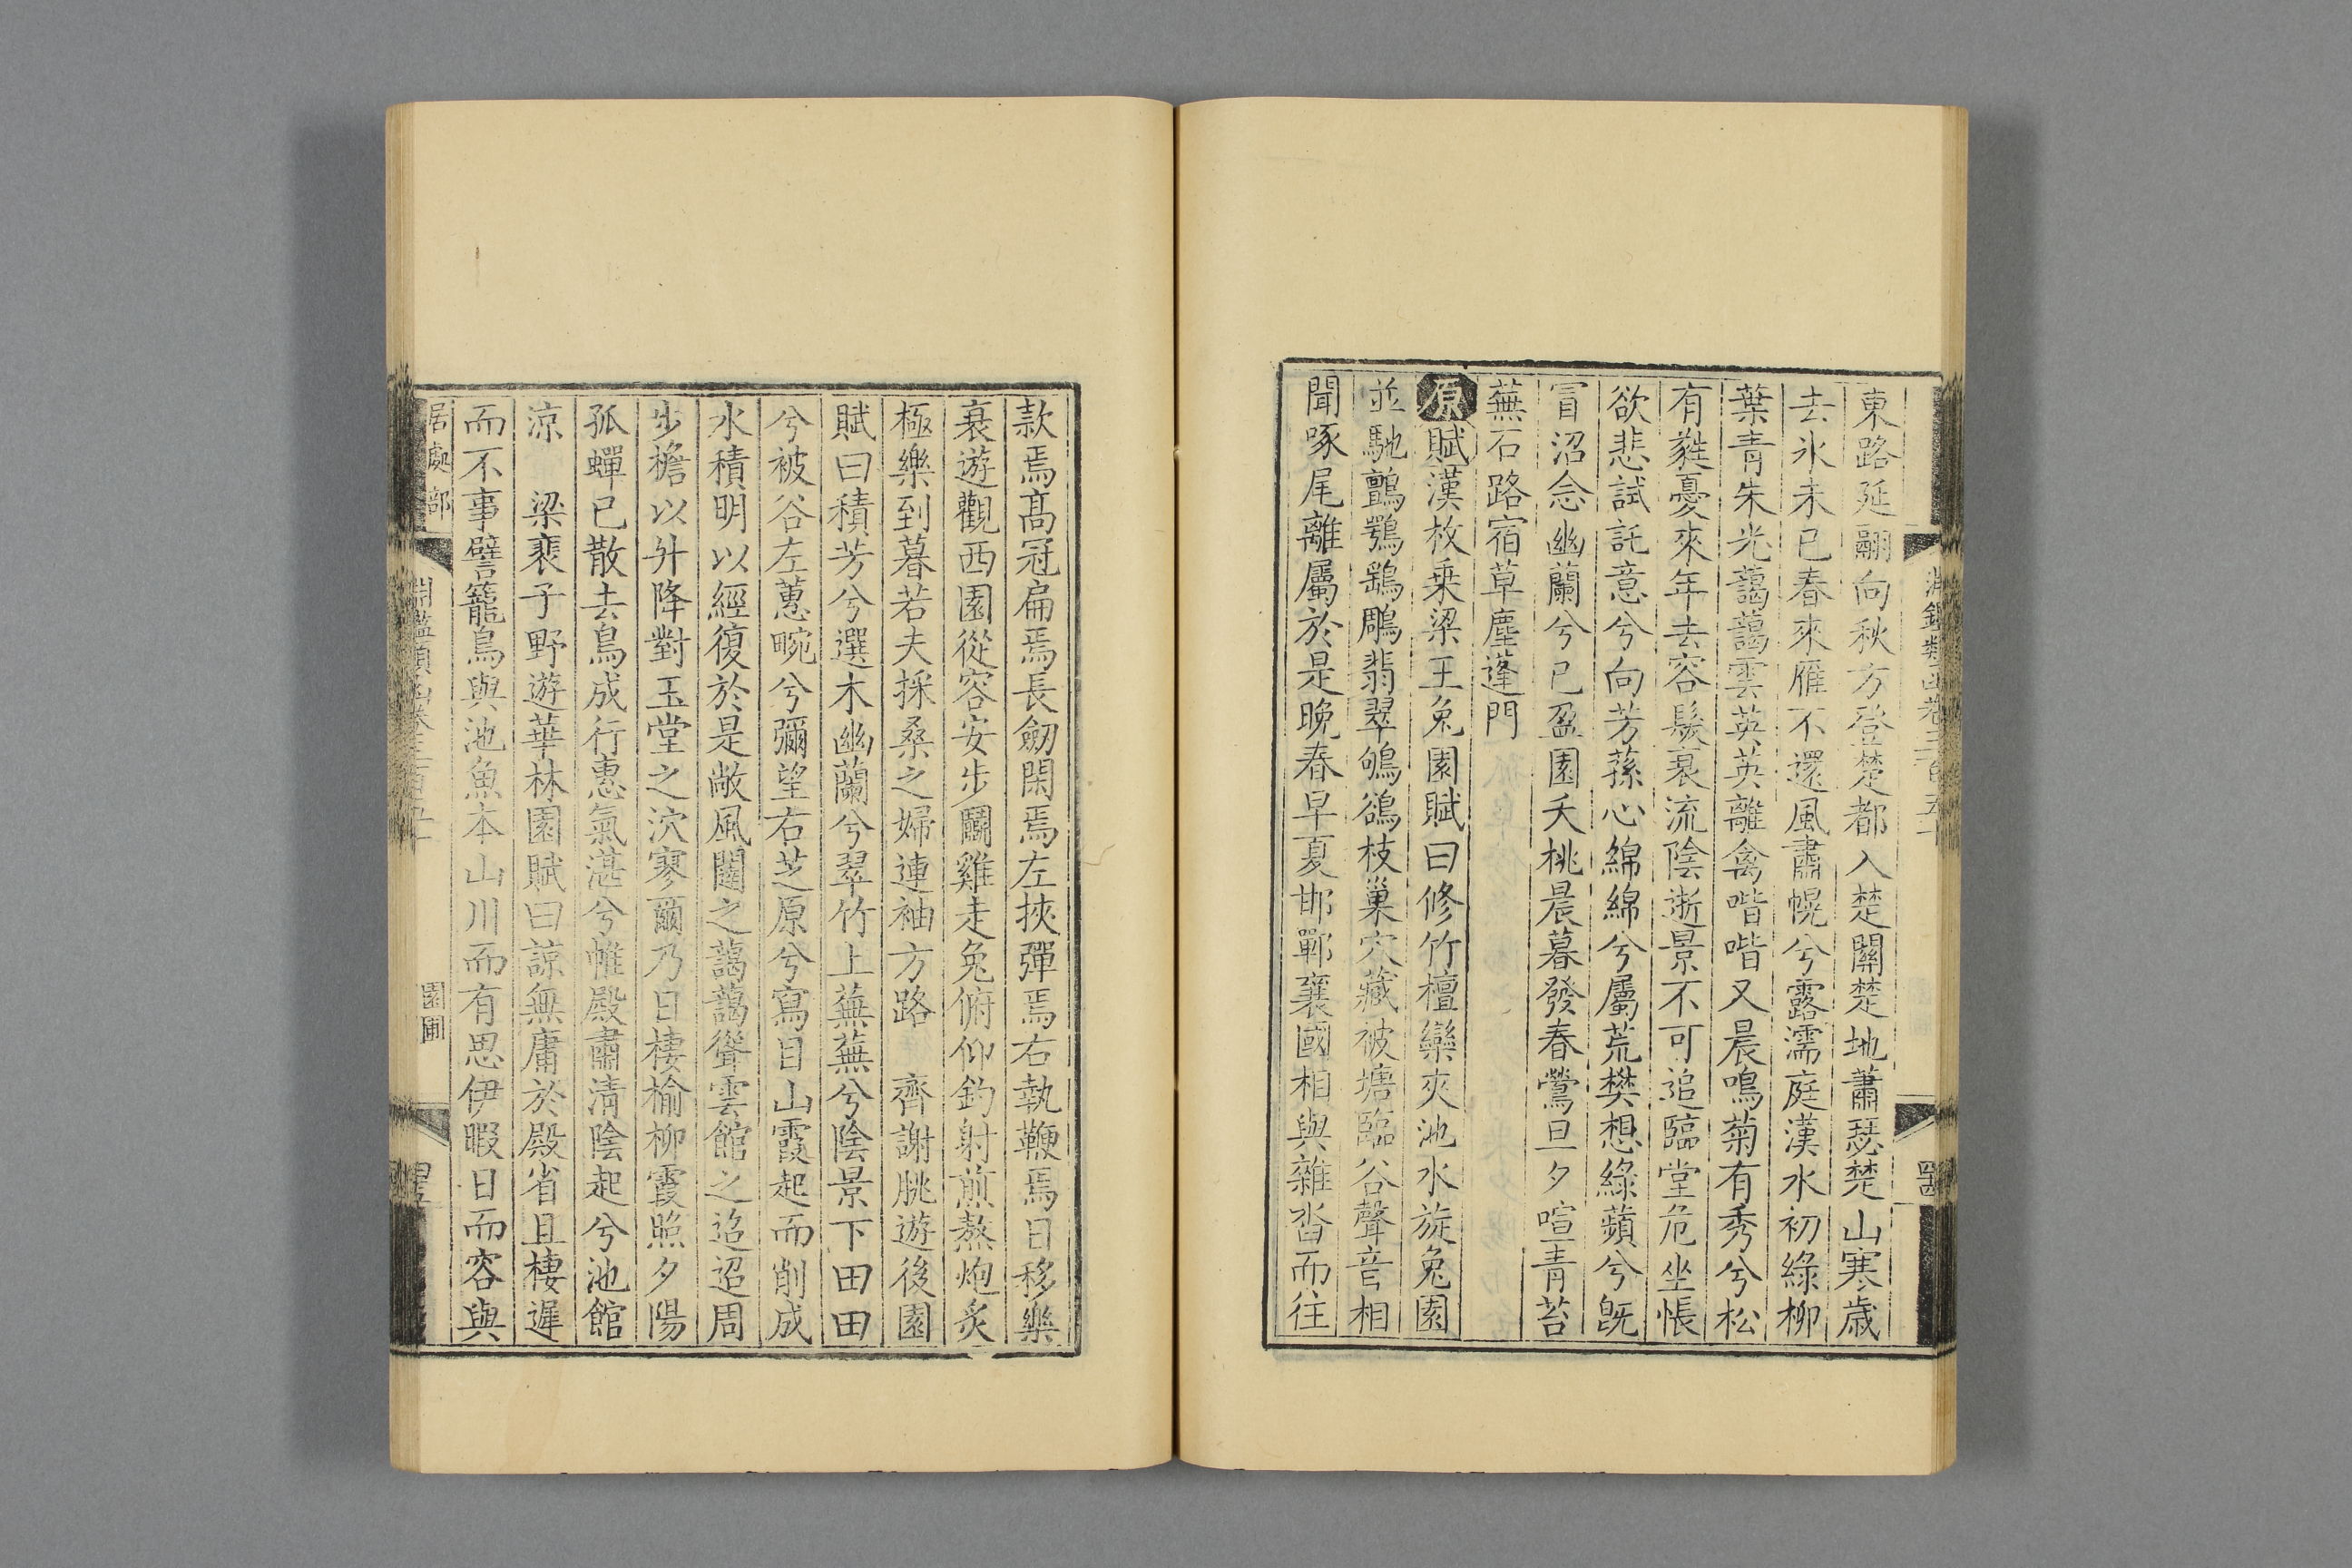 東路延翮向秋方登楚都入楚關楚地蕭瑟楚山寒歲
去氷未已春來雁不還風肅幌兮露濡庭漢水初綠柳
葉青朱光藹藹雲英英離禽喈喈又晨鳴菊有秀兮松
有蕤憂來年去容髮衰流陰逝景不可追臨堂危坐悵
欲悲試託意兮向芳蓀心綿綿兮屬荒樊想綠蘋兮旣
冒沼念幽蘭兮已盈園夭桃晨暮發春鶯旦夕喧青苔
蕪石路宿草塵蓬門
原賦漢枚乘梁王兔園賦曰修竹檀欒夾池水旋兔園
並馳鸇鶚鷂鵰翡翠鴝鵒枝巢穴藏被塘臨谷聲音相
聞啄尾離屬於是晚春早夏邯鄲襄國相與雜沓而往
款焉高冠扁焉長劒閑焉左挾彈焉右執鞭焉日移樂
衰遊觀西園從容安步鬭雞走兔俯仰釣射煎熬炮炙
極樂到暮若夫採桑之婦連袖方路 齊謝朓遊後園
賦曰積芳兮選木幽蘭兮翠竹上蕪蕪兮陰景下田田
兮被谷左蕙畹兮彌望右芝原兮寫目山霞起而削成
水積明以經復於是敞風闥之藹藹聳雲館之迢迢周
步檐以升降對玉堂之泬寥爾乃日棲榆柳霞照夕陽
孤蟬已散去鳥成行惠氣湛兮帷殿肅清陰起兮池館
涼 梁裴子野遊華林園賦曰諒無庸於殿省且棲遲
而不事譬籠鳥與池魚本山川而有思伊暇日而容與
居處部
淵鑑類函卷三百五十
園圃